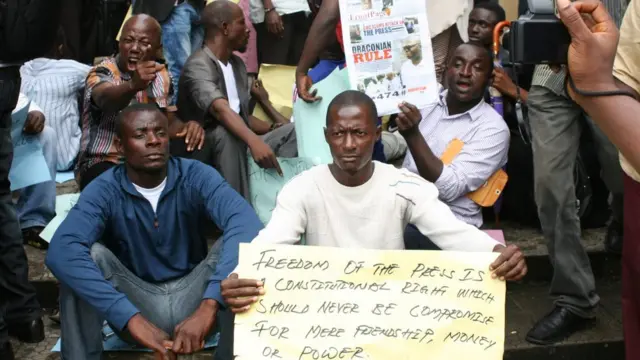 DRACONIAN
RULE
474
FREEDOM OF THE PRESS IS
A CONSTITUTIONAL RIGHT WHICH
SHOULD NEVER BE COMPROMISE
FOR MERE FRIENDSHIP, MONEY
OR POWER.